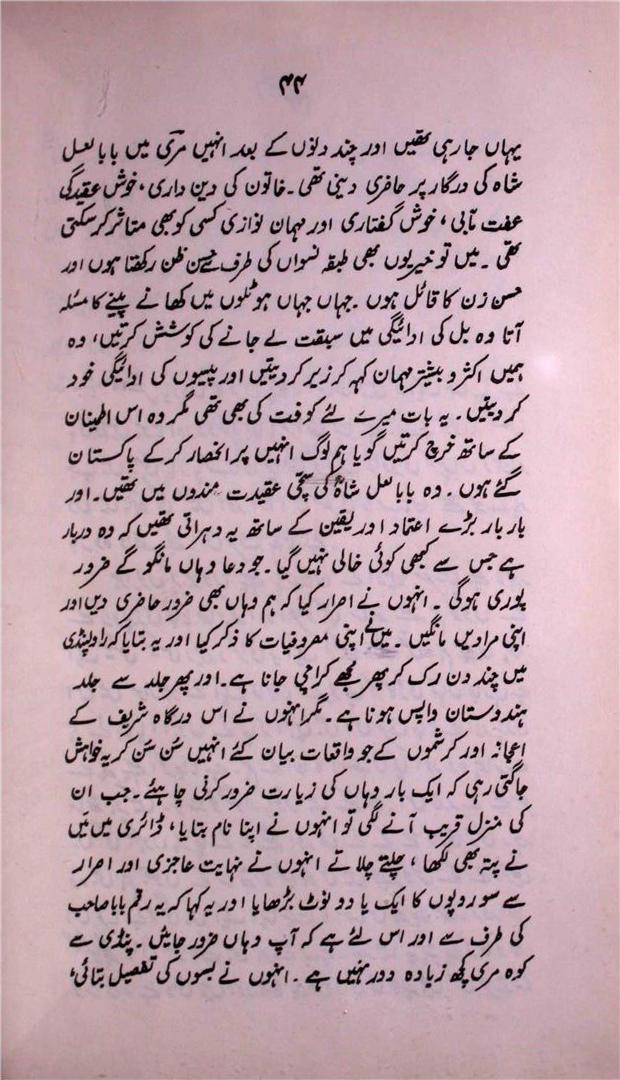 ۴۴
یہاں جا رہی تھیں اور چند دنوں کے بعد انہیں مری میں بابا لعل
شاہ کی درگاہ پر حاضری دینی تھی۔ خاتون کی دین داری، خوش عقیدگی
عفت مآبی، خوش گفتاری اور مہمان نوازی کسی کو بھی متاثر کر سکتی
تھی۔ میں تو خیر یوں بھی طبقہ نسواں کی طرف سے حسن ظن رکھتا ہوں اور
حسن زن کا قائل ہوں۔ جہاں جہاں ہوٹلوں میں کھانے پینے کا مسئلہ
آتا وہ بل کی ادائیگی میں سبقت لے جانے کی کوشش کرتیں، وہ
ہمیں اکثر و بیشتر مہمان کہہ کر زیر کر دیتیں اور پیسوں کی ادائیگی خود
کر دیتیں۔ یہ بات میرے لئے کوفت کی بھی تھی مگر وہ اس اطمینان
کے ساتھ خرچ کرتیں گویا ہم لوگ انہیں پر انحصار کر کے پاکستان
گئے ہوں۔ وہ بابا لعل شاہؒ کی سچی عقیدت مندوں میں تھیں۔ اور
بار بار بڑے اعتماد اور یقین کے ساتھ یہ دہراتی تھیں کہ وہ دربار
ہے جس سے کبھی کوئی خالی نہیں گیا۔ جو دعا وہاں مانگو گے ضرور
پوری ہوگی۔ انہوں نے اصرار کیا کہ ہم وہاں بھی ضرور حاضری دیں اور
اپنی مرادیں مانگیں۔ میں نے اپنی مصروفیات کا ذکر کیا اور یہ بتایا کہ راولپنڈی
میں چند دن رک کر پھر مجھے کراچی جانا ہے۔ اور پھر جلد سے جلد
ہندوستان واپس ہونا ہے۔ مگر انہوں نے اس درگاہ شریف کے
اعجاز اور کرشموں کے جو واقعات بیان کئے انہیں سُن سُن کر یہ خواہش
جاگتی رہی کہ ایک بار وہاں کی زیارت ضرور کرنی چاہئے۔ جب ان
کی منزل قریب آنے لگی تو انہوں نے اپنا نام بتایا، ڈائری میں میں
نے پتہ بھی لکھا، چلتے چلاتے انہوں نے نہایت عاجزی اور اصرار
سے سو روپوں کا ایک یا دو نوٹ بڑھایا اور یہ کہا کہ یہ رقم بابا صاحب
کی طرف سے اور اس لئے ہے کہ آپ وہاں ضرور جائیں۔ پنڈی سے
کوہ مری کچھ زیادہ دور نہیں ہے۔ انہوں نے بسوں کی تفصیل بتائی،